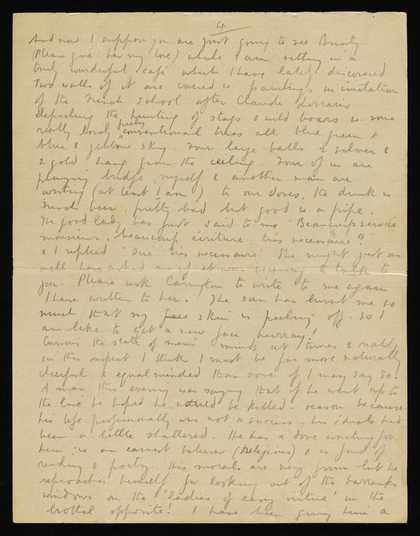 4
And now I suppose you are just going to see Brusty
(Please give her my love) while I am sitting in a
truly wonderful café which I have lately discovered
Two walls of it are covered in paintings in imitation
of the French School after Claude Lorraine
depicting the hunting of stags & wild boars in some
really lovely pretty conventional trees all blue green &
blue & yellow sky. Four large balls 2 silver &
2 gold hang from the ceiling. Four of us are
playing bridge, myself & another man are
writing (at least I am) to our loves. The drink is
French beer, pretty bad but good in a pipe.
The good lady has just said to me "Beaucoup service
monsieur, beaucoup écriture très nécessaire"
& I replied "Oui très nécessaire" She might just as
well have asked it was necessary to talk to
you. Please ask Carrington to write to me again
I have written to her. The sun has burnt me so
much that my face skin is peeling off. So I
am like to get a new face hurray!
Curious the state of men's minds at times & really
in this respect I think I must be far more naturally
cheerful & equal minded than some if I may say so!
A man this evening was saying that if he went up to
the line he hoped he would be killed – reason because
his life professionally was not a success – his ideals had
been a little shattered. He has a love waiting for
him, is an earnest believer (religious) & is fond of
reading & poetry. His morals are very firm but he
reproaches himself for looking out of the barracks
windows on the 'ladies of easy virtue' in the
brothel opposite! I have been giving him a